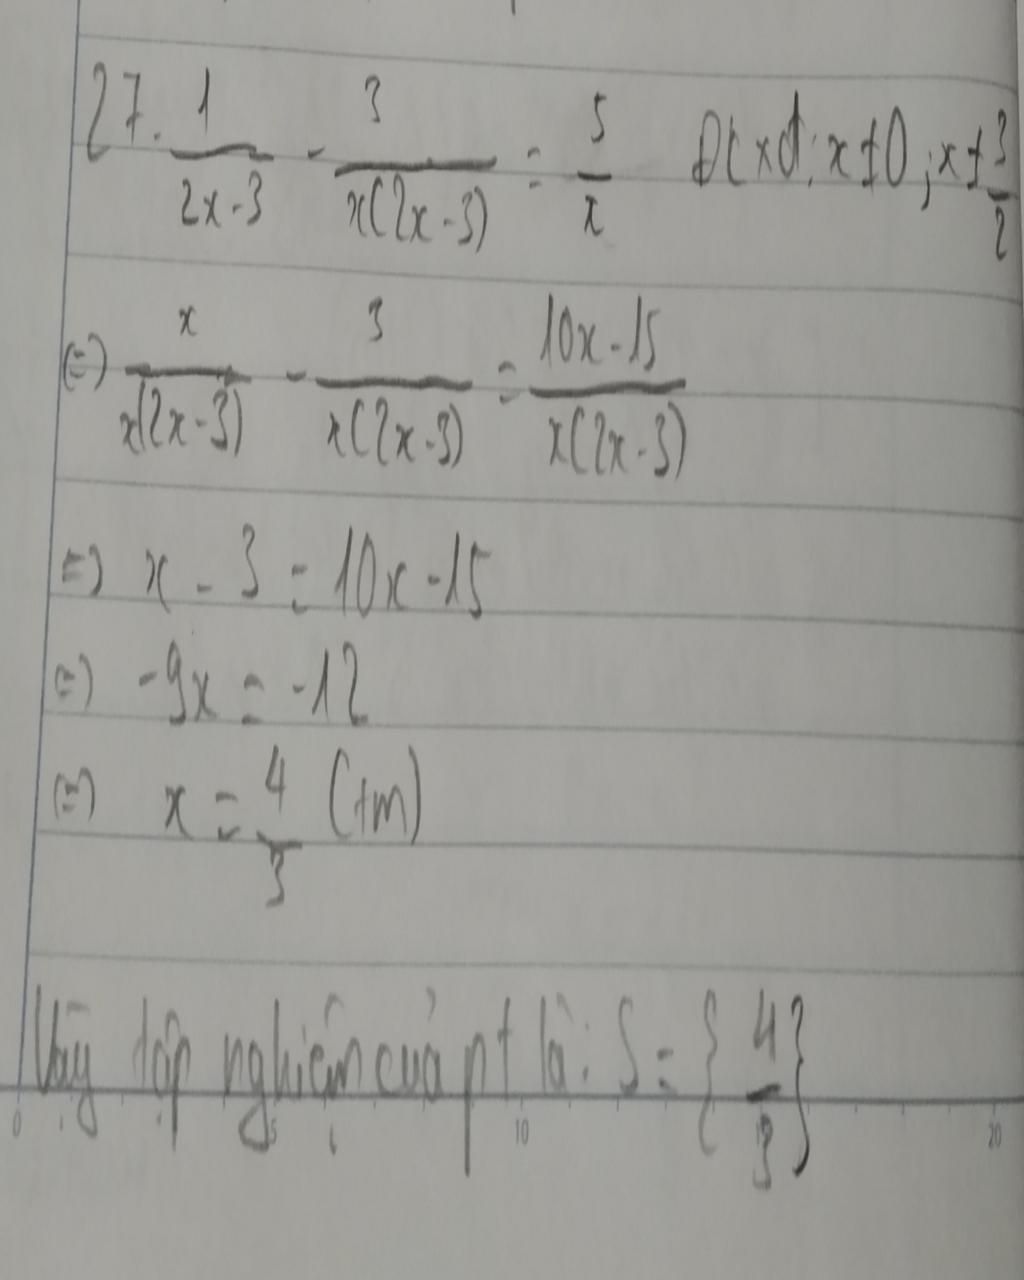 27. 1/(2x-3) - 3/(x(2x-3)) = 5/x ĐKXĐ: x≠0; x≠3/2
(=) x/(x(2x-3)) - 3/(x(2x-3)) = (10x-15)/(x(2x-3))
=) x - 3 = 10x - 15
(=) -9x = -12
(=) x = 4/3 (tm)
Vậy tập nghiệm của pt là: S = {4/3}
0 5 10 20